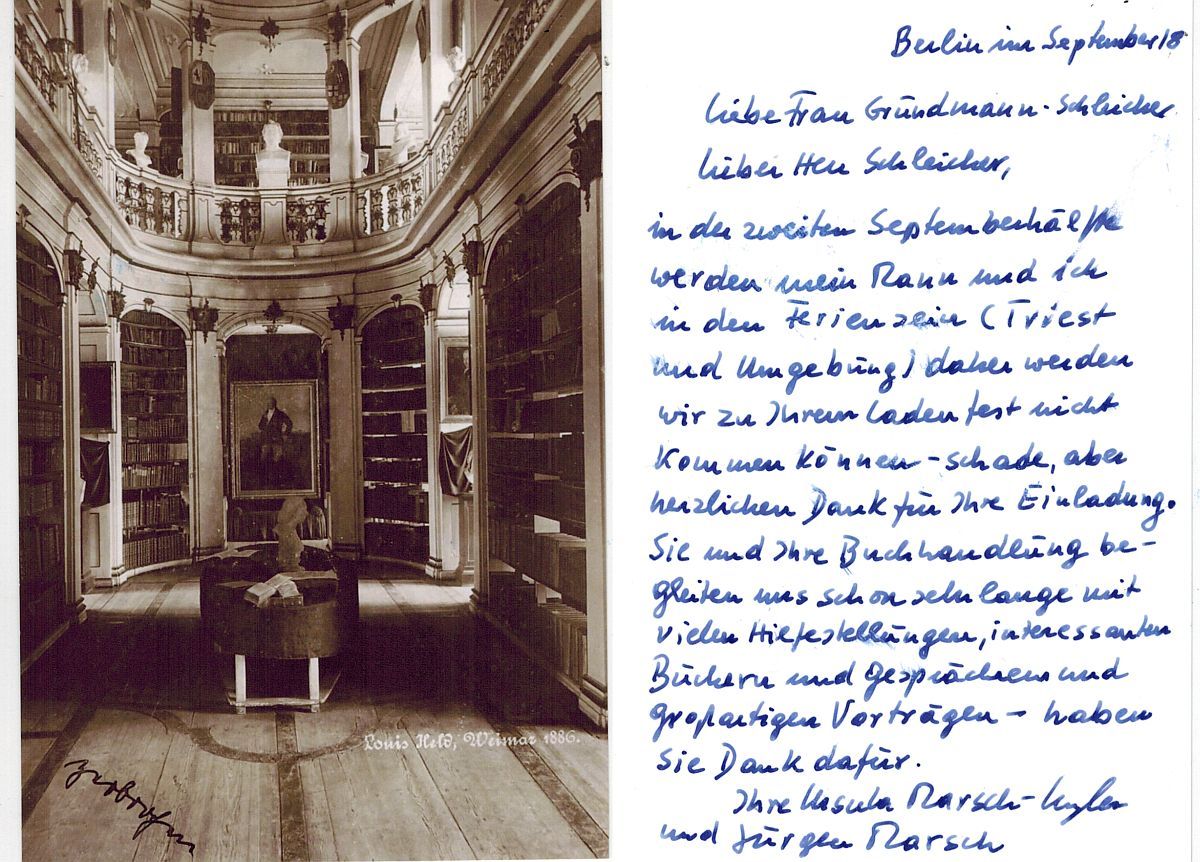 Louis Held, Weimar 1886.
Berlin im September 18
Liebe Frau Grundmann-Schleicher
lieber Herr Schleicher,
in der zweiten Septemberhälfte
werden mein Mann und ich
in den Ferien sein (Triest
und Umgebung) daher werden
wir zu Ihrem Ladenfest nicht
kommen können - schade, aber
herzlichen Dank für Ihre Einladung.
Sie und Ihre Buchhandlung be-
gleiten uns schon sehr lange mit
vielen Hilfestellungen, interessanten
Büchern und Gesprächen und
großartigen Vorträgen - haben
Sie Dank dafür.
Ihre Ursula Marsch-
und Jürgen Marsch